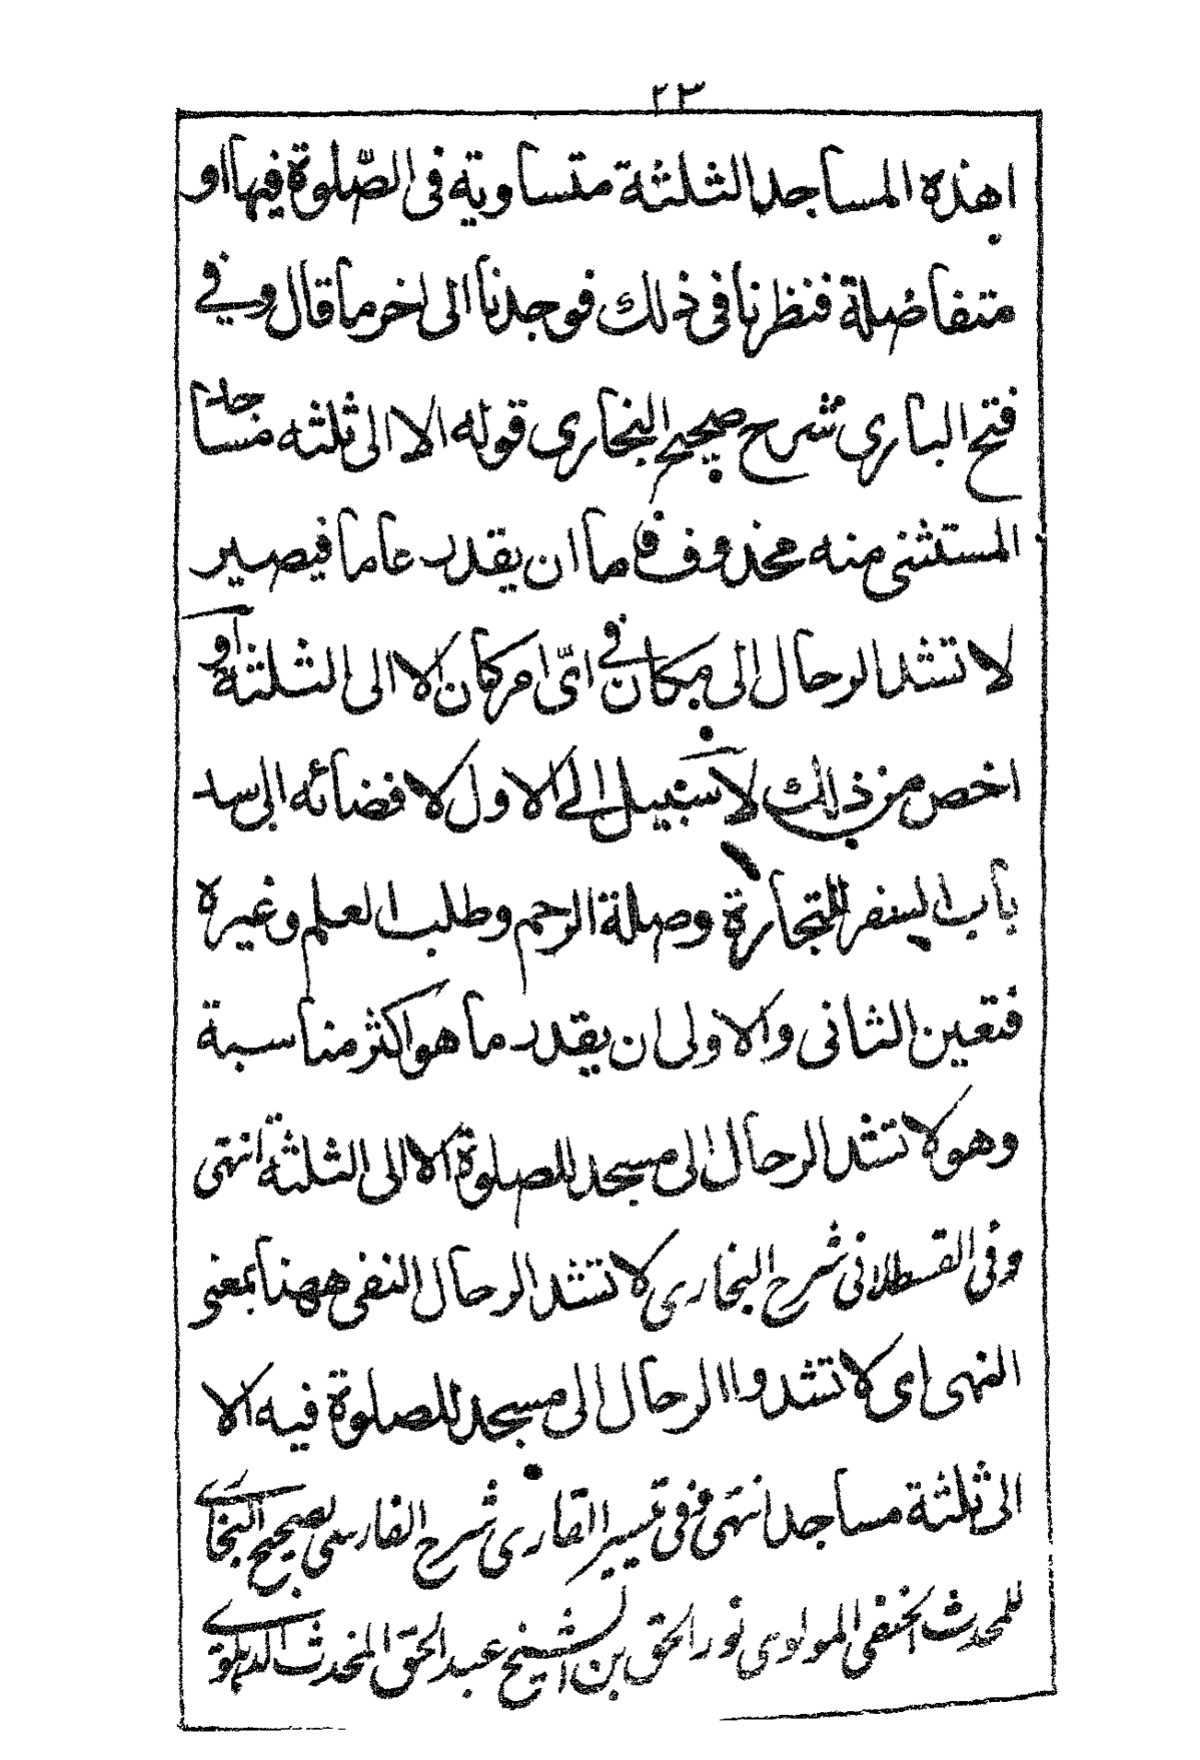 ٢٣
اهذه المساجد الثلثة متساوية فى الصّلوة فيها او
متفاضلة فنظرنا فى ذلك فوجدنا الى اخر ما قال وفي
فتح البارى شرح صحيح البخارى قوله الا الى ثلثه مساجد
المستثنى منه محذوف فاما ان يقدر عاما فيصير
لا تشد الرحال الى مكان فى اىّ امر كان الا الى الثلثة او
اخص من ذلك لا سبيل الى الاول لافضائه الى سد
باب السفر للتجارة وصلة الرحم وطلب العلم وغيره
فتعين الثانى والاولى ان يقدر ما هو اكثر مناسبة
وهو لا تشد الرحال الى مسجد للصلوة الا الى الثلثة انتهى
وفى القسطلانى شرح البخارى لا تشد الرحال النفى ههنا بمعنى
النهى اى لا تشدوا الرحال الى مسجد للصلوة فيه الا
الى ثلثة مساجد انتهى وفى تيسير القارى شرح الفارسى لصحيح البخارى
للمحدث الحنفى المولوى نور الحق بن الشيخ عبد الحق المحدث الدهلوى